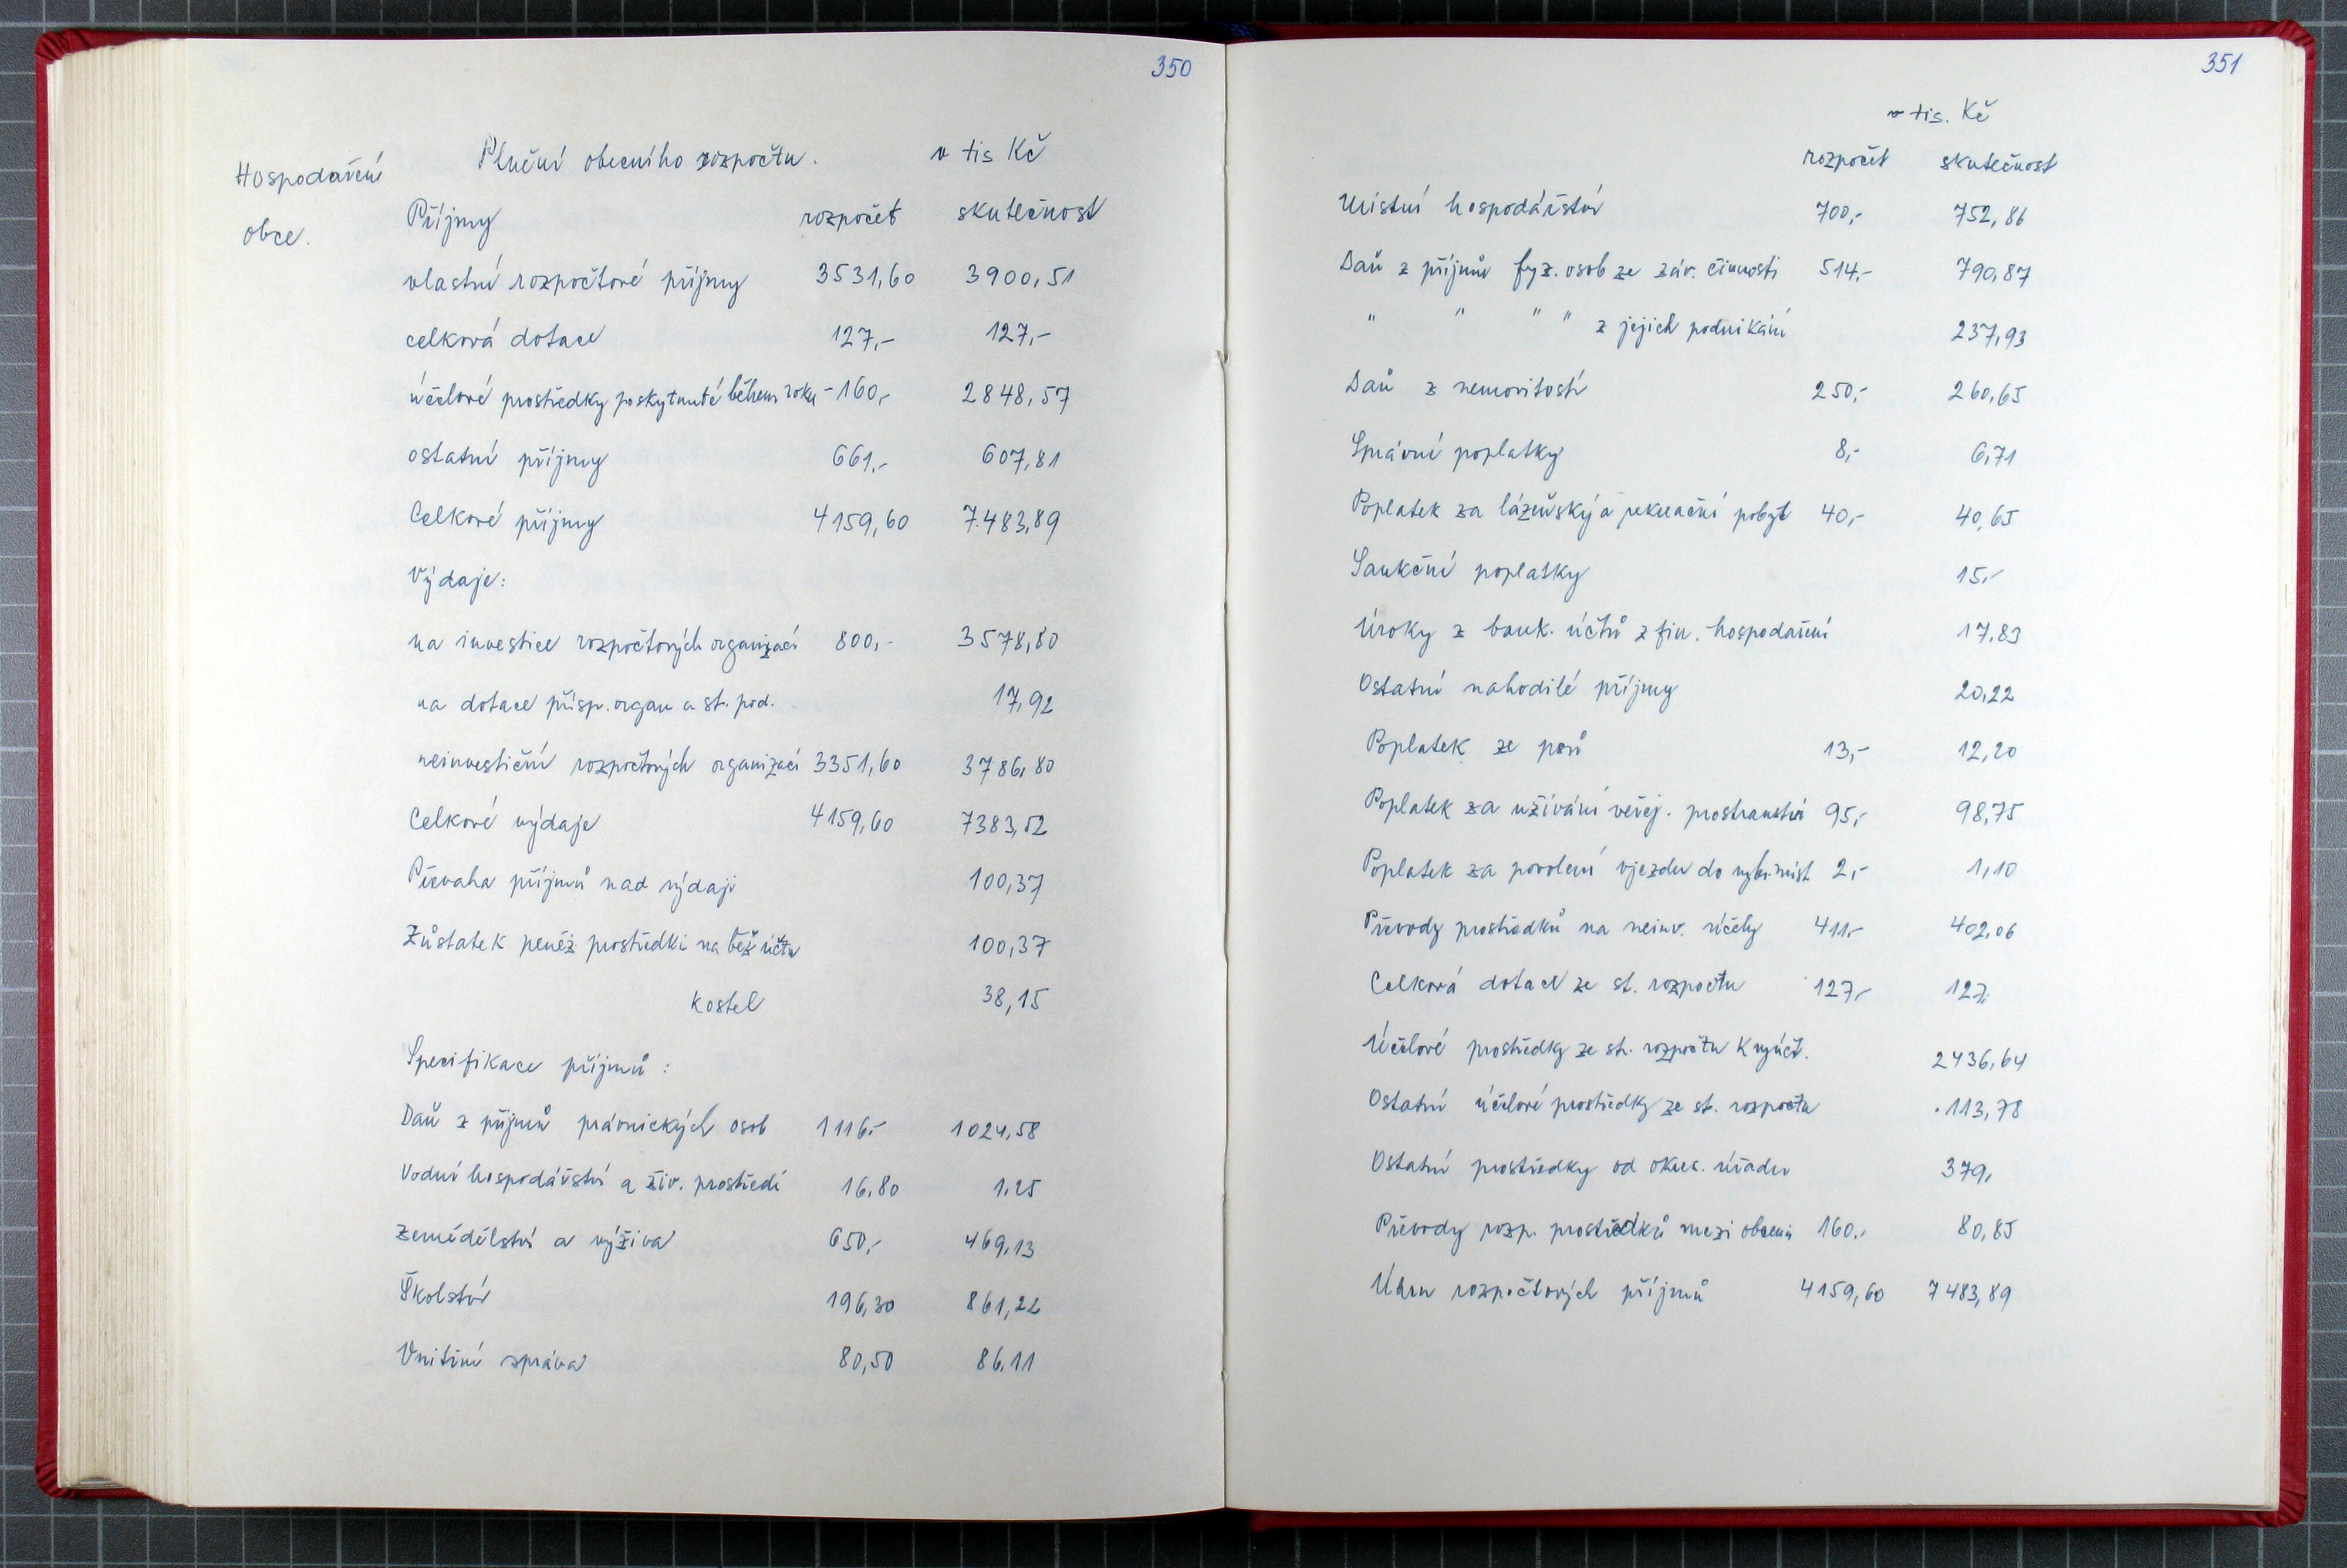 350
Hospodaření
obce.
Plnění obecního rozpočtu. v tis Kč
Příjmy rozpočet skutečnost
vlastní rozpočtové příjmy 3531,60 3900,51
celková dotace 127,- 127,-
účelové prostředky poskytnuté během roku -160,- 2848,57
ostatní příjmy 661,- 607,81
Celkové příjmy 4159,60 7.483,89
Výdaje:
na investice rozpočtových organizací 800,- 3578,80
na dotace přísp. organ a st. pod. 17,92
neinvestiční rozpočtových organizací 3351,60 3786,80
Celkové výdaje 4159,60 7383,52
Převaha příjmů nad výdaji 100,37
Zůstatek peněž prostředků na běž účtu 100,37
kostel 38,15
Specifikace příjmů:
Daň z příjmů právnických osob 1116,- 1024,58
Vodní hospodářství a živ. prostředí 16,80 1,25
Zemědělství a výživa 650,- 469,13
Školství 196,30 861,22
Vnitřní správa 80,50 86,11
351
v tis. Kč
rozpočet skutečnost
Místní hospodářství 700,- 752,86
Daň z příjmů fyz. osob ze záv. činnosti 514,- 790,87
" " " " z jejich podnikání 237,93
Daň z nemovitostí 250,- 260,65
Správní poplatky 8,- 6,71
Poplatek za lázeňský a rekreační pobyt 40,- 40,65
Sankční poplatky 15,-
Úroky z bank. účtů z fin. hospodaření 17,83
Ostatní nahodilé příjmy 20,22
Poplatek ze psů 13,- 12,20
Poplatek za užívání veřej. prostranství 95,- 98,75
Poplatek za povolení vjezdu do vybr. míst 2,- 1,10
Převody prostředků na neinv. účely 411,- 402,06
Celková dotace ze st. rozpočtu 127,- 127,
Účelové prostředky ze st. rozpočtu k vyúčt. 2436,64
Ostatní účelové prostředky ze st. rozpočtu .113,78
Ostatní prostředky od okres. úřadu 379,
Převody rozp. prostředků mezi obcemi 160,- 80,85
Úhrn rozpočtových příjmů 4159,60 7483,89